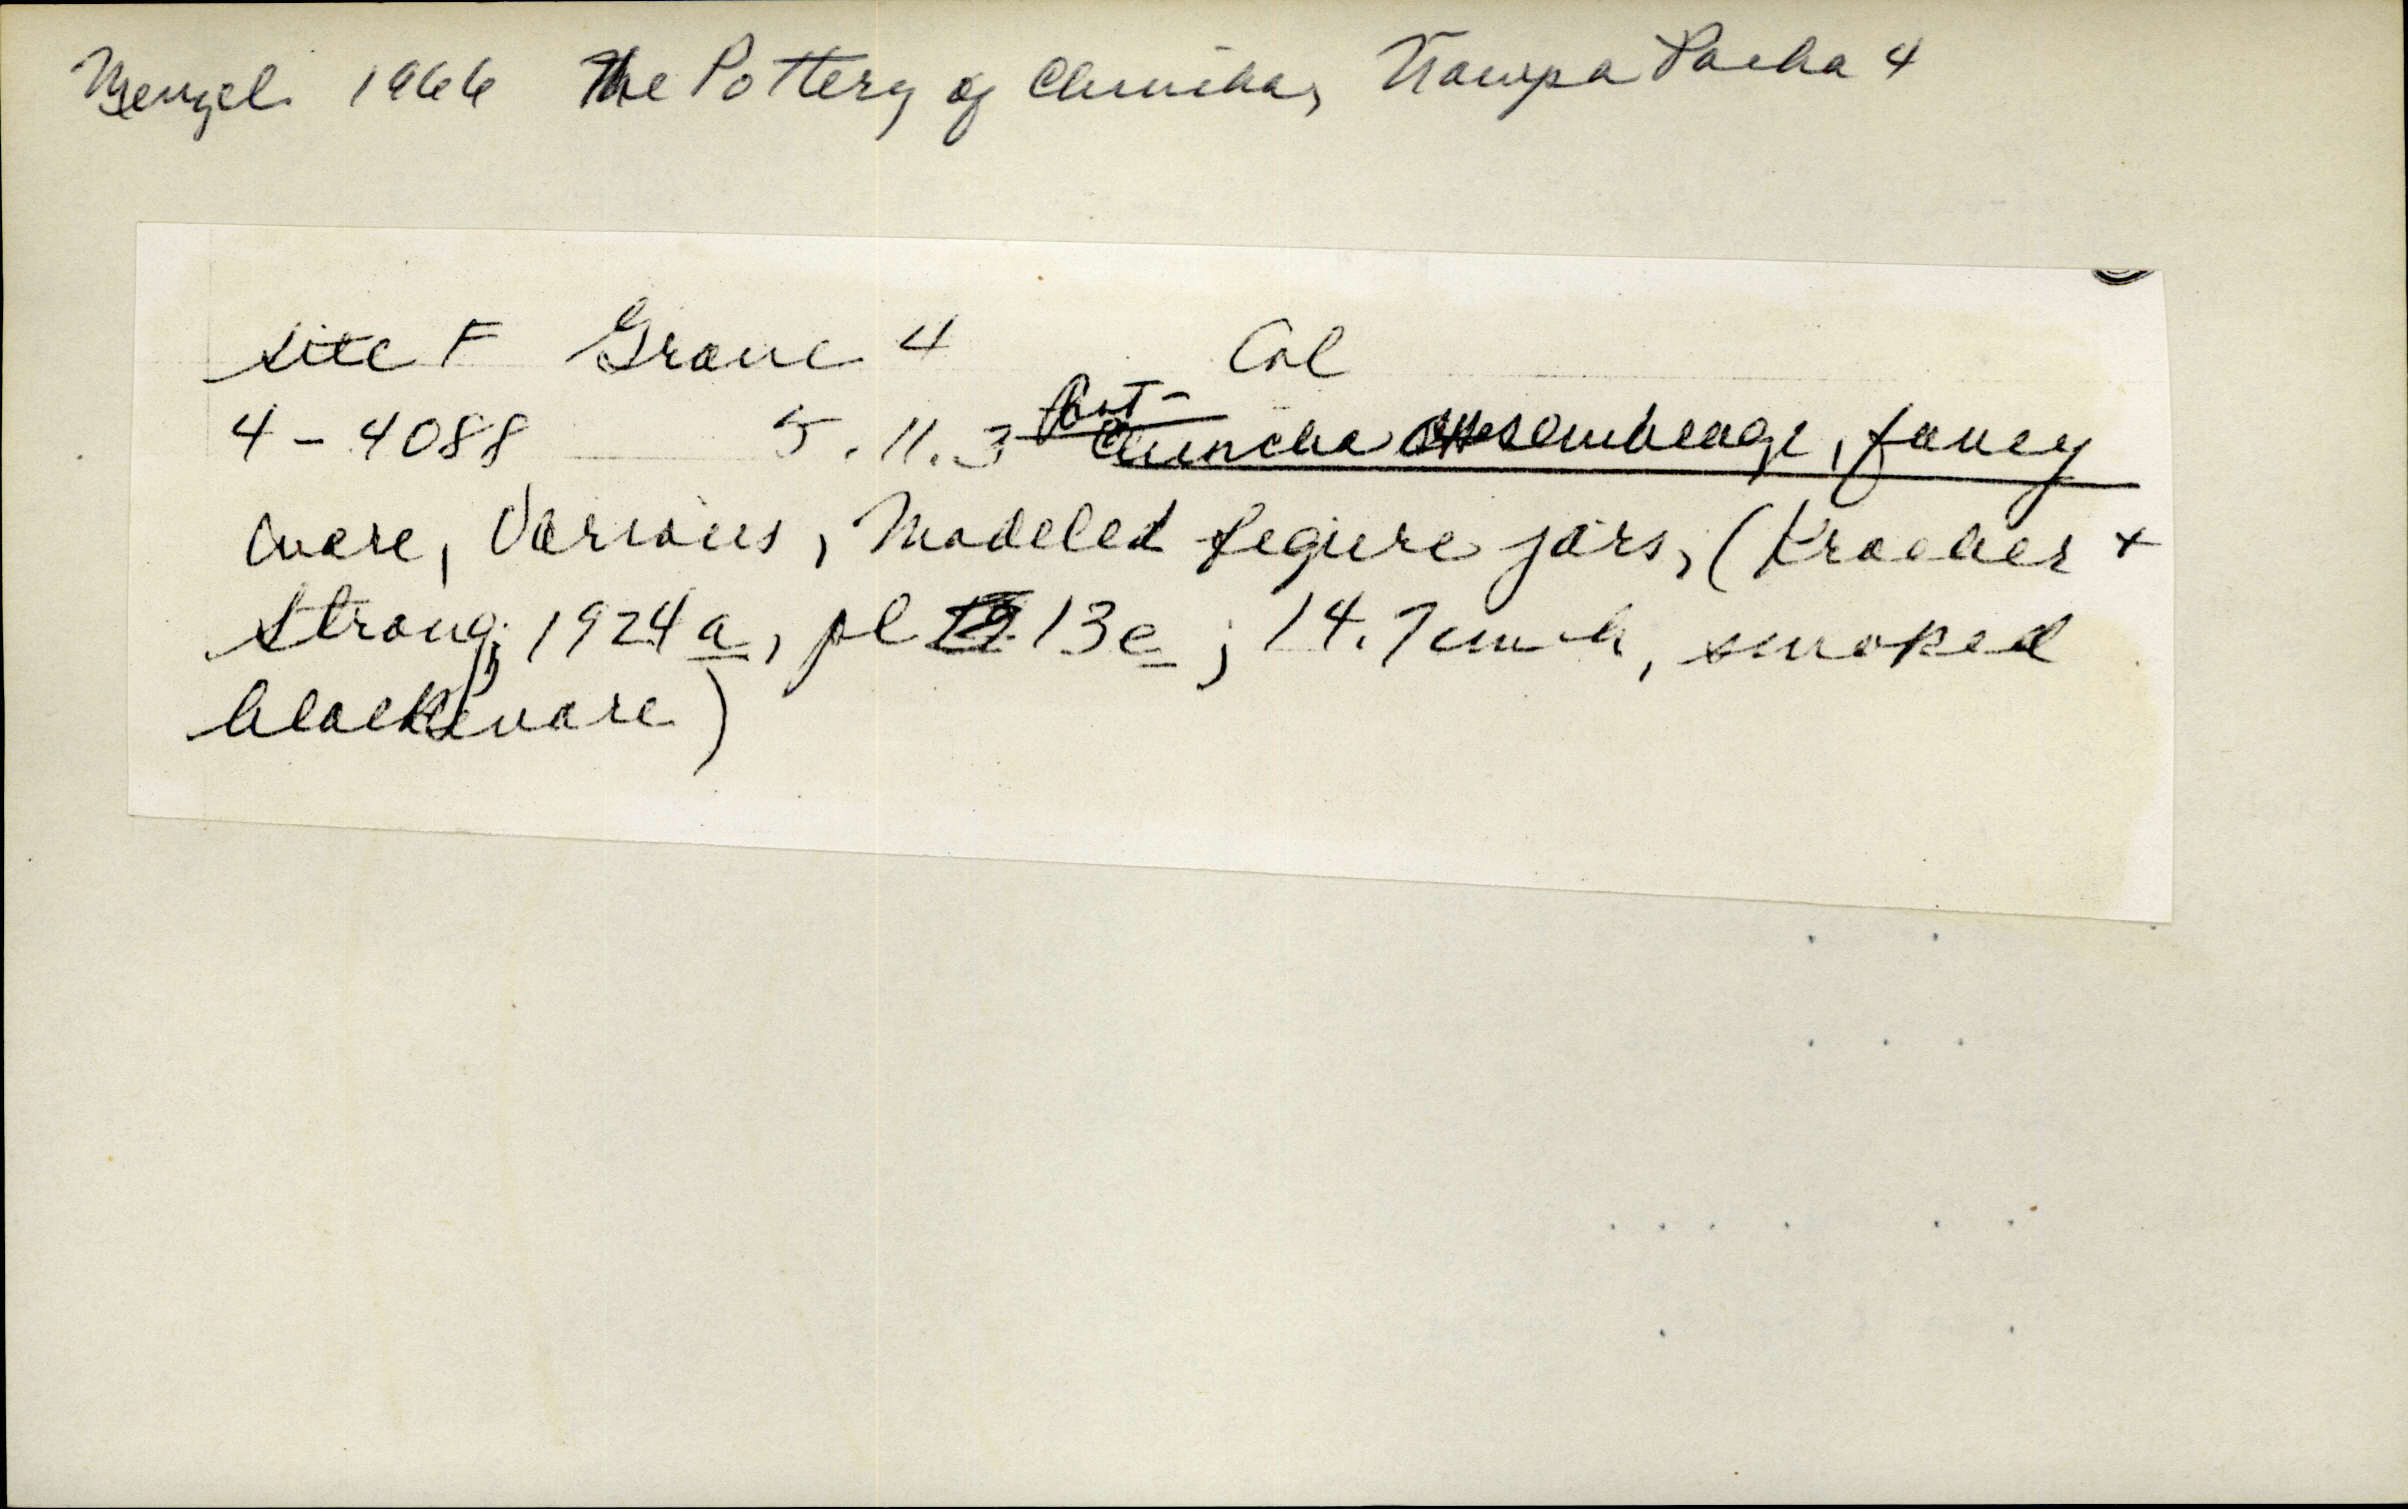 Menzel 1966 The Pottery of Chincha, Ñawpa Pacha 4
site F Grave 4 Col
4-4088 5.11.3 Post-Chincha assemblage, fancy
ware, Various, Modeled figure jars, (Kroeber +
Strong, 1924a, pl 13e; 14.7 cm h, smoked
blackware)